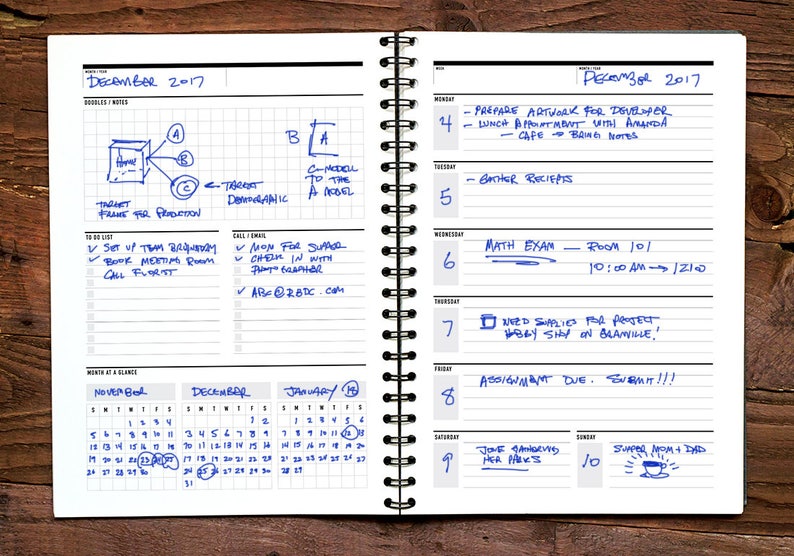 MONTH / YEAR
DECEMBER 2017
DOODLES / NOTES
Home
A
B
C
← TARGET
DEMOGRAPHIC
TARGET
FRAME FOR PRODUCTION
B
A
C-MODELL
TO THE
A MODEL
TO DO LIST
✓ SET UP TEAM
✓ BOOK MEETING ROOM
CALL FLORIST
CALL / EMAIL
✓ MOM FOR SUPPER
✓ CHECK IN WITH
PHOTOGRAPHER
✓ ABC@RBDC.COM
MONTH AT A GLANCE
NOVEMBER
S M T W T F S
1 2 3 4
5 6 7 8 9 10 11
12 13 14 15 16 17 18
19 20 21 22 23 24 25
26 27 28 29 30
DECEMBER
S M T W T F S
1 2
3 4 5 6 7 8 9
10 11 12 13 14 15 16
17 18 19 20 21 22 23
24 25 26 27 28 29 30
31
JANUARY 18
S M T W T F S
1 2 3 4 5 6
7 8 9 10 11 12 13
14 15 16 17 18 19 20
21 22 23 24 25 26 27
28 29
WEEK
MONTH / YEAR
DECEMBER 2017
MONDAY
4
- PREPARE ARTWORK FOR DEVELOPER
- LUNCH APPOINTMENT WITH AMANDA
- CAFE → BRING NOTES
TUESDAY
5
- GATHER RECIEPTS
WEDNESDAY
6
MATH EXAM — ROOM 101
10:00 AM → 1200
THURSDAY
7
NEED SUPPLIES FOR PROJECT
HOBBY SHOP ON GRANVILLE!
FRIDAY
8
ASSIGNMENT DUE. SUBMIT!!!
SATURDAY
9
HER PARKS
SUNDAY
10
SUPPER MOM + DAD